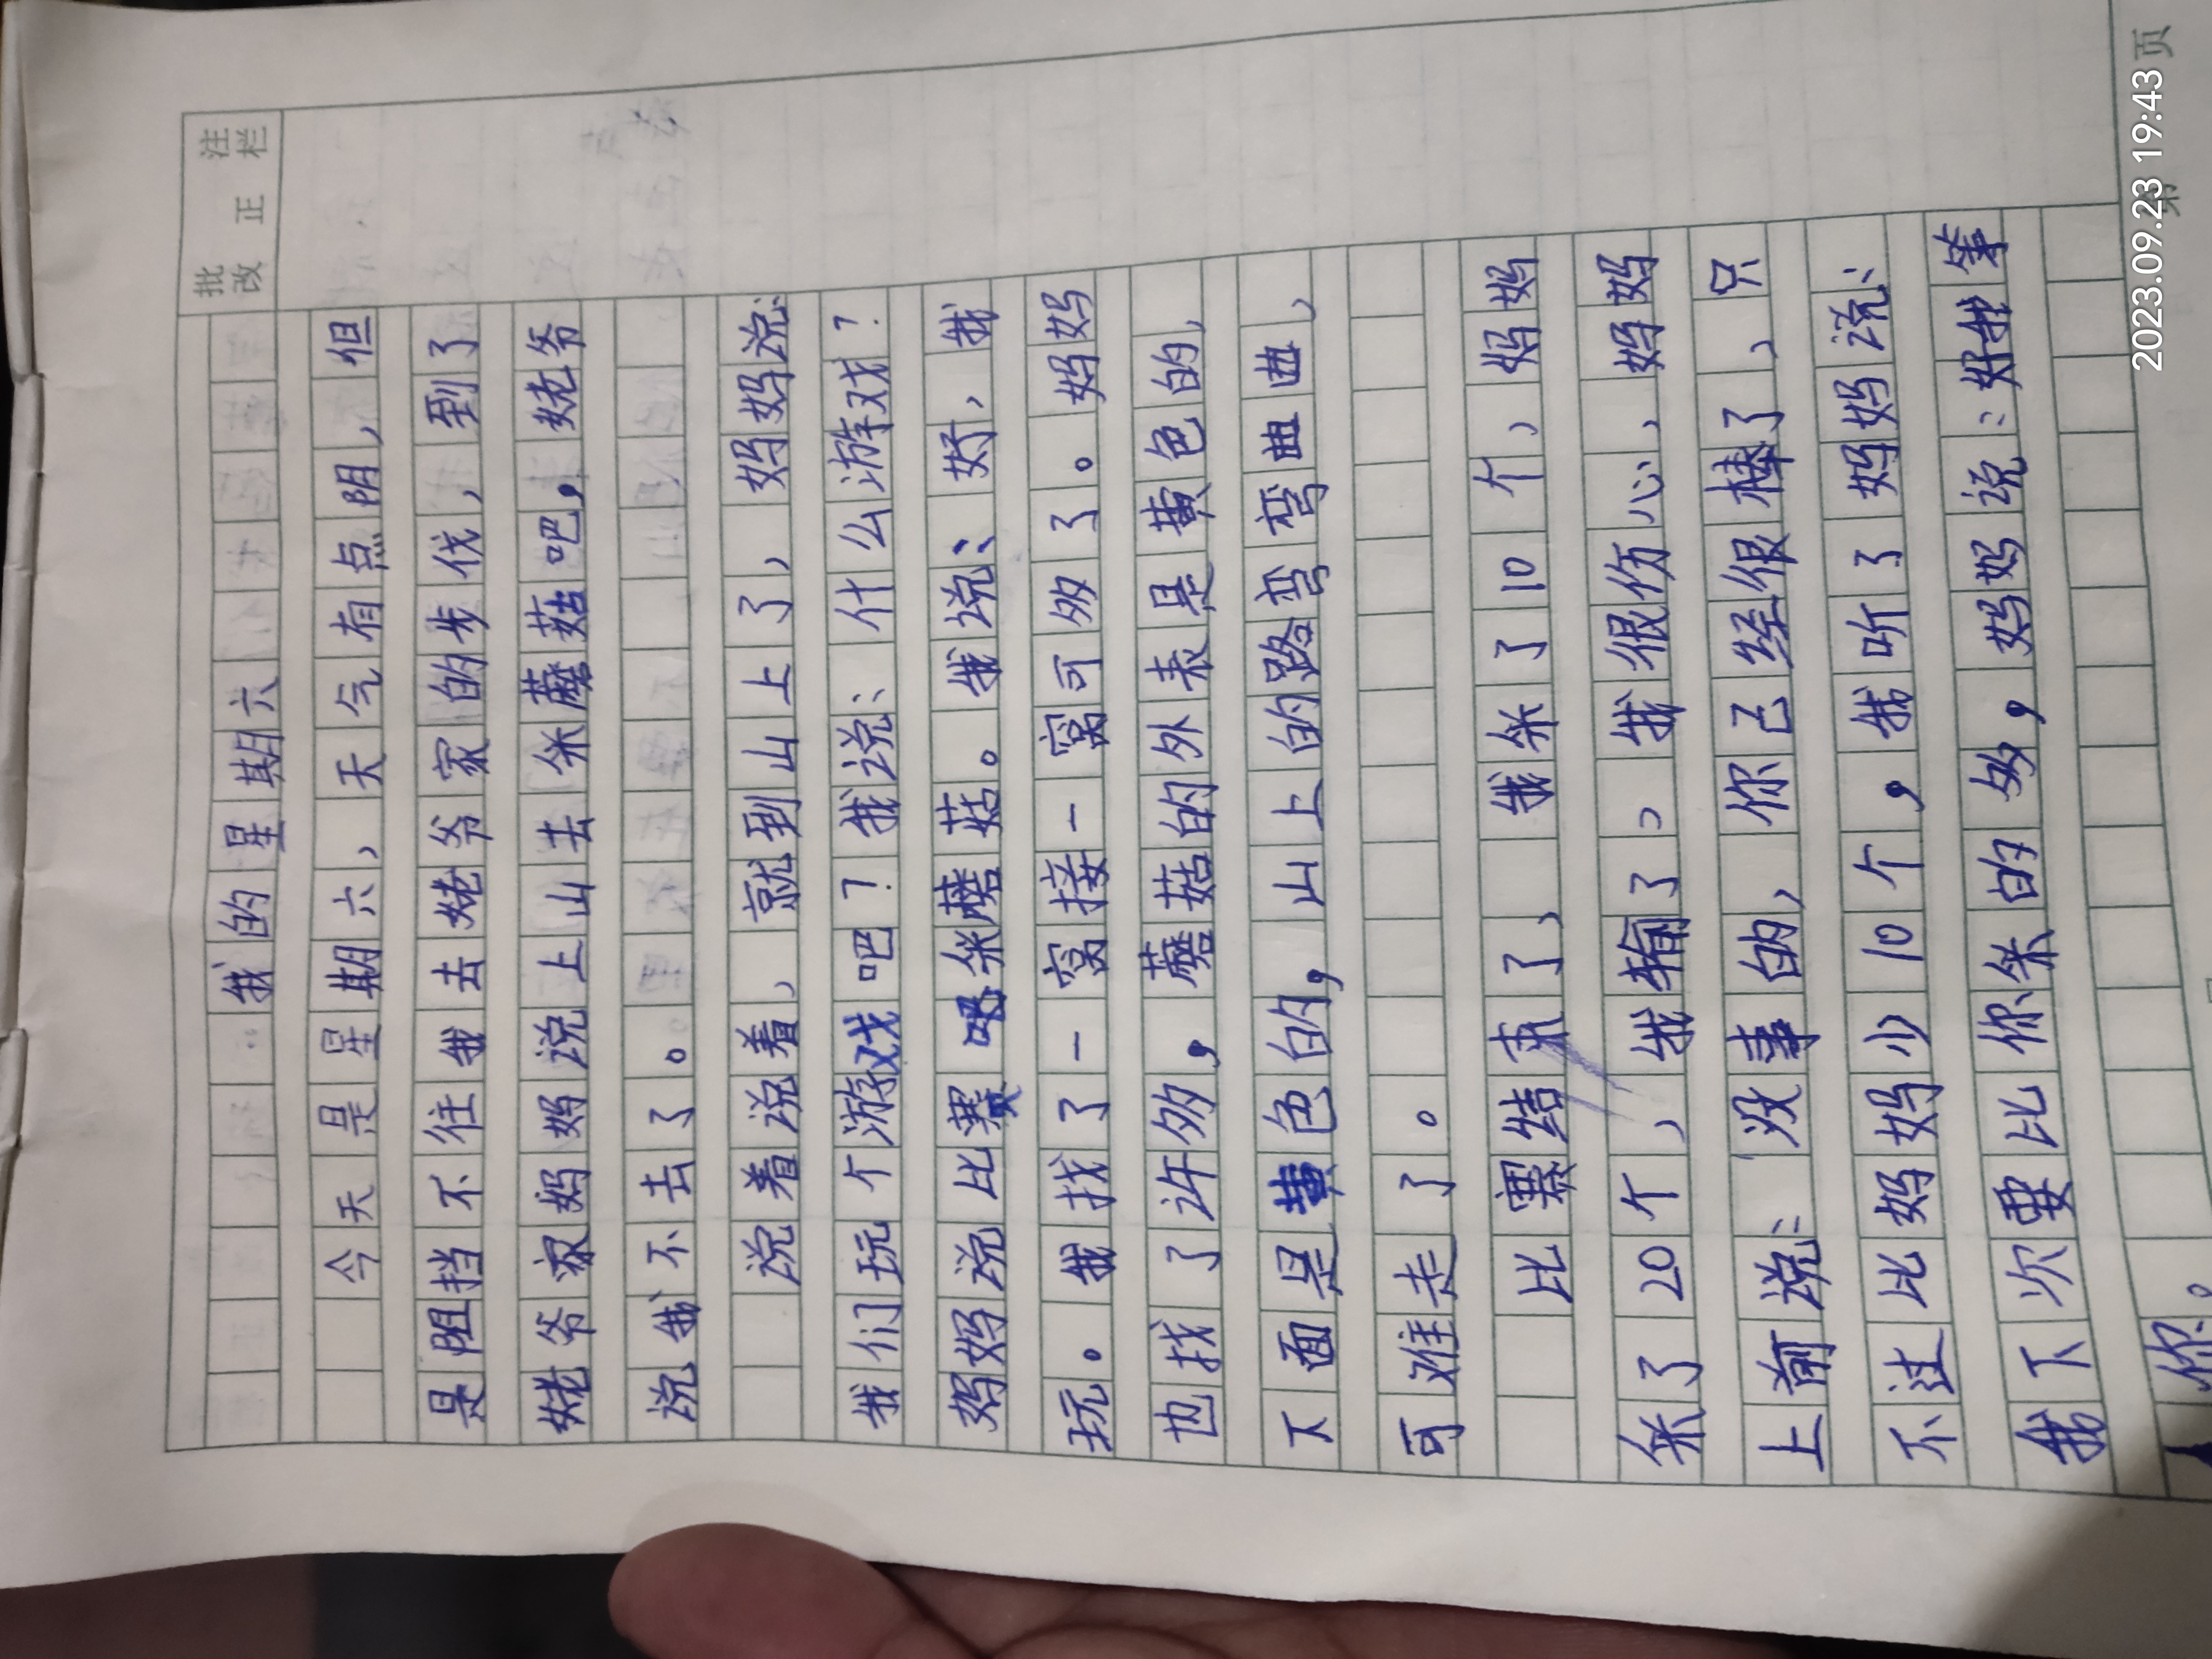 批改 注
正栏
我的星期六
今天是星期六，天气有点阴，但
是阻挡不住我去姥爷家的步伐，到了
姥爷家妈妈说上山去采蘑菇吧，姥爷
说我不去了。
说着说着，就到山上了，妈妈说：
我们玩个游戏吧？我说：什么游戏？
妈妈说比赛采蘑菇。我说：好，我
玩。我找了一窝接一窝可多了。妈妈
也找了许多，蘑菇的外表是黄色的，
下面是黄色的，山上的路弯弯曲曲，
可难走了。
比赛结束了，我采了10个，妈妈
采了20个，我输了，我很伤心，妈妈
上前说：没事的，你已经很棒了，只
不过比妈妈少10个，我听了妈妈说：
我下次要比你采的多，妈妈说：好我等
你。
第 页
2023.09.23 19:43